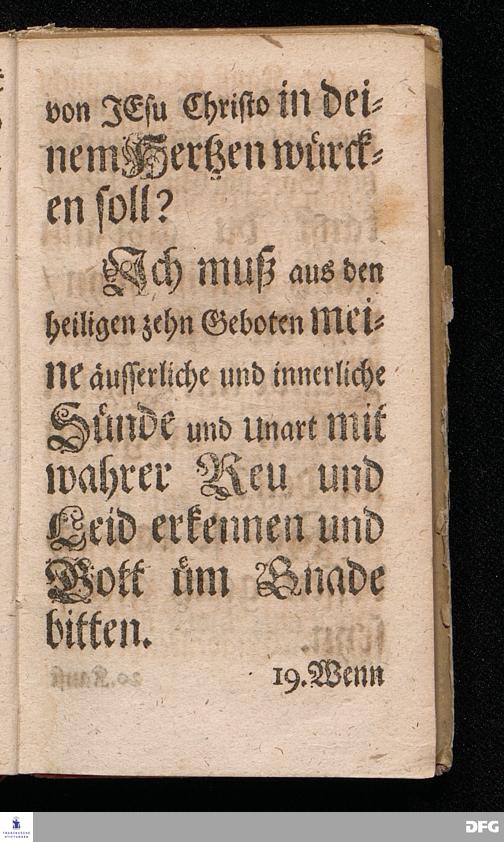 von JEsu Christo in dei-
nem Hertzen würck-
en soll?
Ich muß aus den
heiligen zehn Geboten mei-
ne äusserliche und innerliche
Sünde und Unart mit
wahrer Reu und
Leid erkennen und
Gott üm Gnade
bitten.
19. Wenn
FRANCKESCHE
STIFTUNGEN
DFG